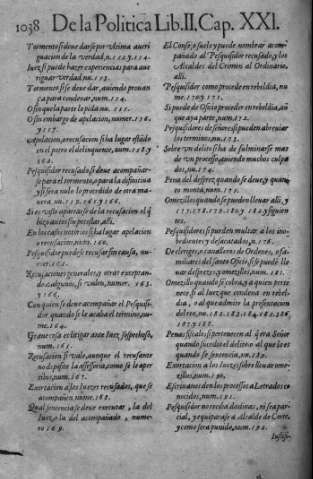 1038 De la Politica Lib. II. Cap. XXI.
Tormento si deue darse por vltima aueri
guacion de la verdad, n. 112. y 114.
Iuez si puede hazer experiencias para aue
riguar verdad, nu. 113.
Tormento si se deue dar, auiendo prouan
ça para condenar, num. 114.
Oso quela parte lo pida nu. 115.
O sin embargo de apelacion, numer. 116.
y 117.
Apelacion, o recusacion si ha lugar estãdo
en el potro el delinquente, num. 118. y
Pesquisidor recusado si deue acompañar-
se para el tormento, o para la difinitiua
y si sera nulo lo procedido de otra ma-
nera, nu.
Si es visto apartarse de la recusacion el q̃
En los casos
si ha lugar apelacion
o recusacion, num. 160.
Pesquisidor puede se recusar sin causa, nu-
Recusaciones generales, y otras exceptan-
do, si valen, numer. 163.
y 166.
Con quien se deue acompañar el Pesquisi-
dor quando se le acaba el termino, nu-
me. 164.
Graue cosa es litigar ante Iuez sospechoso,
num. 165.
Recusacion si vale, aunque el recusante
no
num. 167.
Exortacion a los Iuezes recusados, que se
acompañen, num. 168.
Qual sentencia se deue executar, la del
Iuez, o la del acompañado, nume-
ro 169.
El Consejo suele y puede nombrar acom-
pañado al Pesquisidor recusado, y los
Alcaldes del Crimen al Ordinario,
alli.
Pesquisidor como procede en rebeldia, nu
me. 170. y 171.
Si puede de Oficio proceder en rebeldia, aũ
que aya parte, num. 172.
Pesquisidores de señores si pueden abreuiar
los terminos, nu. 173.
Sobre vn delito si ha de fulminarse mas
de vn processo, auiendo muchos culpa
dos, nu. 174.
Pena del desprez, quando se deue, y quan-
to monta, num. 175.
Omezillos quando se pueden lleuar alli, y
177. 178. 179. 180. y 182. y siguien
tes.
Pesquisidores si pueden multar a los ino-
bedientes y desacatados, n. 176.
De clerigos, o caualleros de Ordenes, o fa-
miliares del santo Oficio, si se puede lle
uar desprezes, y omezillos, num. 181.
Omezillo quando si cobra, y a quien perte
nece si al Iuez que condena en rebel-
dia, o al que admite la presentacion
del reo, nu. 182. 183. 184. 185. 186.
187. y 188.
Penas fiscales si pertenecen al q̃ era Señor
quando sucedio el delito o al que lo es
quando se sentencia, nu. 189.
Exortacion a los Iuezes sobre lleuar ome-
zillos, num. 190.
Escriuanos den los processos a Letrados co
nocidos, num. 191.
Pesquisidor no reciba dadiuas, ni sea par-
cial, y equiparase a Alcalde de Corte,
y como sera punido, num. 192.
Iustic-